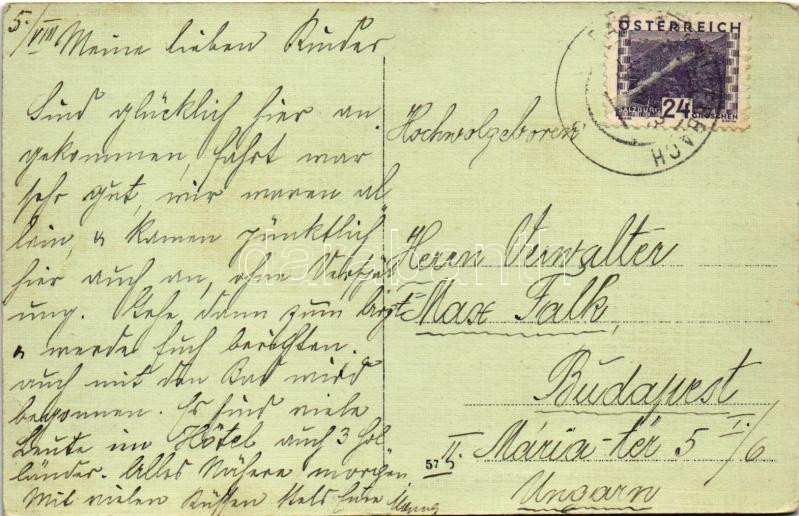 5./VIII Meine lieben Kinder
Sind glücklich hier an,
gekommen, Fahrt war
sehr gut, wir waren al
lein, u kamen pünktlich
hier auch an, ohne Verspät
ung. Gehe dann zum Arzt
u werde Euch berichten.
auch mit den Bad wird
begonnen. Es sind viele
Leute im Hôtel auch 3 Hol
länder. Alles Nähere morgen
Mit vielen Küssen stets Eure
ÖSTERREICH
SALZBURG 24 GROSCHEN
Hochwolgeboren
Herrn Verwalter
Max Falk,
Budapest
II. Mária-tér 5 I./6
Ungarn
57
darabanth